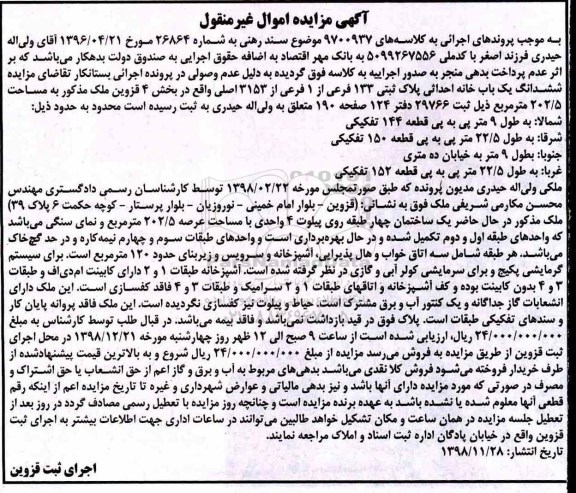 آگهی مزایده اموال غیرمنقول
به موجب پروندهای اجرائی به کلاسه‌های ۹۷۰۰۹۳۷ موضوع سند رهنی به شماره ۲۶۸۶۴ مورخ ۱۳۹۶/۰۴/۲۱ آقای ولی‌اله
حیدری فرزند اصغر با کدملی ۵۰۹۹۲۶۷۵۵۶ به بانک مهر اقتصاد به اضافه حقوق اجرایی به صندوق دولت بدهکار می‌باشد که بر
اثر عدم پرداخت بدهی منجر به صدور اجراییه به کلاسه فوق گردیده به دلیل عدم وصولی در پرونده اجرائی بستانکار تقاضای مزایده
ششدانگ یک باب خانه احداثی پلاک ثبتی ۱۳۳ فرعی از ۱ فرعی از ۳۱۵۳ اصلی واقع در بخش ۴ قزوین ملک مذکور به مساحت
۲۰۲/۵ مترمربع ذیل ثبت ۲۹۷۶۶ دفتر ۱۲۴ صفحه ۱۹۰ متعلق به ولی‌اله حیدری به ثبت رسیده است محدود به حدود ذیل:
شمالا: به طول ۹ متر پی به پی قطعه ۱۴۴ تفکیکی
شرقا: به طول ۲۲/۵ متر پی به پی قطعه ۱۵۰ تفکیکی
جنوبا: بطول ۹ متر به خیابان ده متری
غربا: به طول ۲۲/۵ متر پی به پی قطعه ۱۵۲ تفکیکی
ملکی ولی‌اله حیدری مدیون پرونده که طبق صورتمجلس مورخه ۱۳۹۸/۰۲/۲۲ توسط کارشناسان رسمی دادگستری مهندس
محسن مکارمی شریفی ملک فوق به نشانی: (قزوین - بلوار امام خمینی - نوروزیان - بلوار پرستار - کوچه حکمت ۶ پلاک ۳۹)
ملک مذکور در حال حاضر یک ساختمان چهار طبقه روی پیلوت ۴ واحدی با مساحت عرصه ۲۰۲/۵ مترمربع و نمای سنگی می‌باشد
که واحدهای طبقه اول و دوم تکمیل شده و در حال بهره‌برداری است و واحدهای طبقات سوم و چهارم نیمه‌کاره و در حد گچ‌خاک
می‌باشد. هر طبقه شامل سه اتاق خواب و هال پذیرایی آشپزخانه و سرویس و زیربنای حدود ۱۲۰ مترمربع است. برای سیستم
گرمایشی پکیج و برای سرمایشی کولر آبی و گازی در نظر گرفته شده است. آشپزخانه طبقات ۱ و ۲ دارای کابینت ام‌دی‌اف و طبقات
۳ و ۴ بدون کابینت بوده و کف آشپزخانه و اتاقهای طبقات ۱ و ۲ سرامیک و طبقات ۳ و ۴ فاقد کفسازی است. این ملک دارای
انشعابات گاز جداگانه و یک کنتور آب و برق مشترک است. حیاط و پیلوت نیز کفسازی نگردیده است. این ملک فاقد پروانه پایان کار
و سندهای تفکیکی طبقات است. پلاک فوق در قید بازداشت نمی‌باشد و فاقد بیمه می‌باشد. در قبال طلب توسط کارشناس به مبلغ
۲۴/۰۰۰/۰۰۰/۰۰۰ ریال، ارزیابی شده است از ساعت ۹ صبح الی ۱۲ ظهر روز چهارشنبه مورخه ۱۳۹۸/۱۲/۲۱ در محل اجرای
ثبت قزوین از طریق مزایده به فروش می‌رسد مزایده از مبلغ ۲۴/۰۰۰/۰۰۰/۰۰۰ ریال شروع و به بالاترین قیمت پیشنهادشده از
طرف خریدار فروخته می‌شود فروش کلا نقدی می‌باشد بدهی‌های مربوط به آب و برق و گاز اعم از حق انشعاب یا حق اشتراک و
مصرف در صورتی که مورد مزایده دارای آنها باشد و نیز بدهی مالیاتی و عوارض شهرداری و غیره تا تاریخ مزایده اعم از اینکه رقم
قطعی آنها معلوم شده یا نشده باشد به عهده برنده مزایده است و چنانچه روز مزایده با تعطیل رسمی مصادف گردد در روز بعد از
تعطیل جلسه مزایده در همان ساعت و مکان تشکیل خواهد طالبین می‌توانند در ساعات اداری جهت اطلاعات بیشتر به اجرای ثبت
قزوین واقع در خیابان پادگان اداره ثبت اسناد و املاک مراجعه نمایند.
تاریخ انتشار: ۱۳۹۸/۱۱/۲۸
اجرای ثبت قزوین